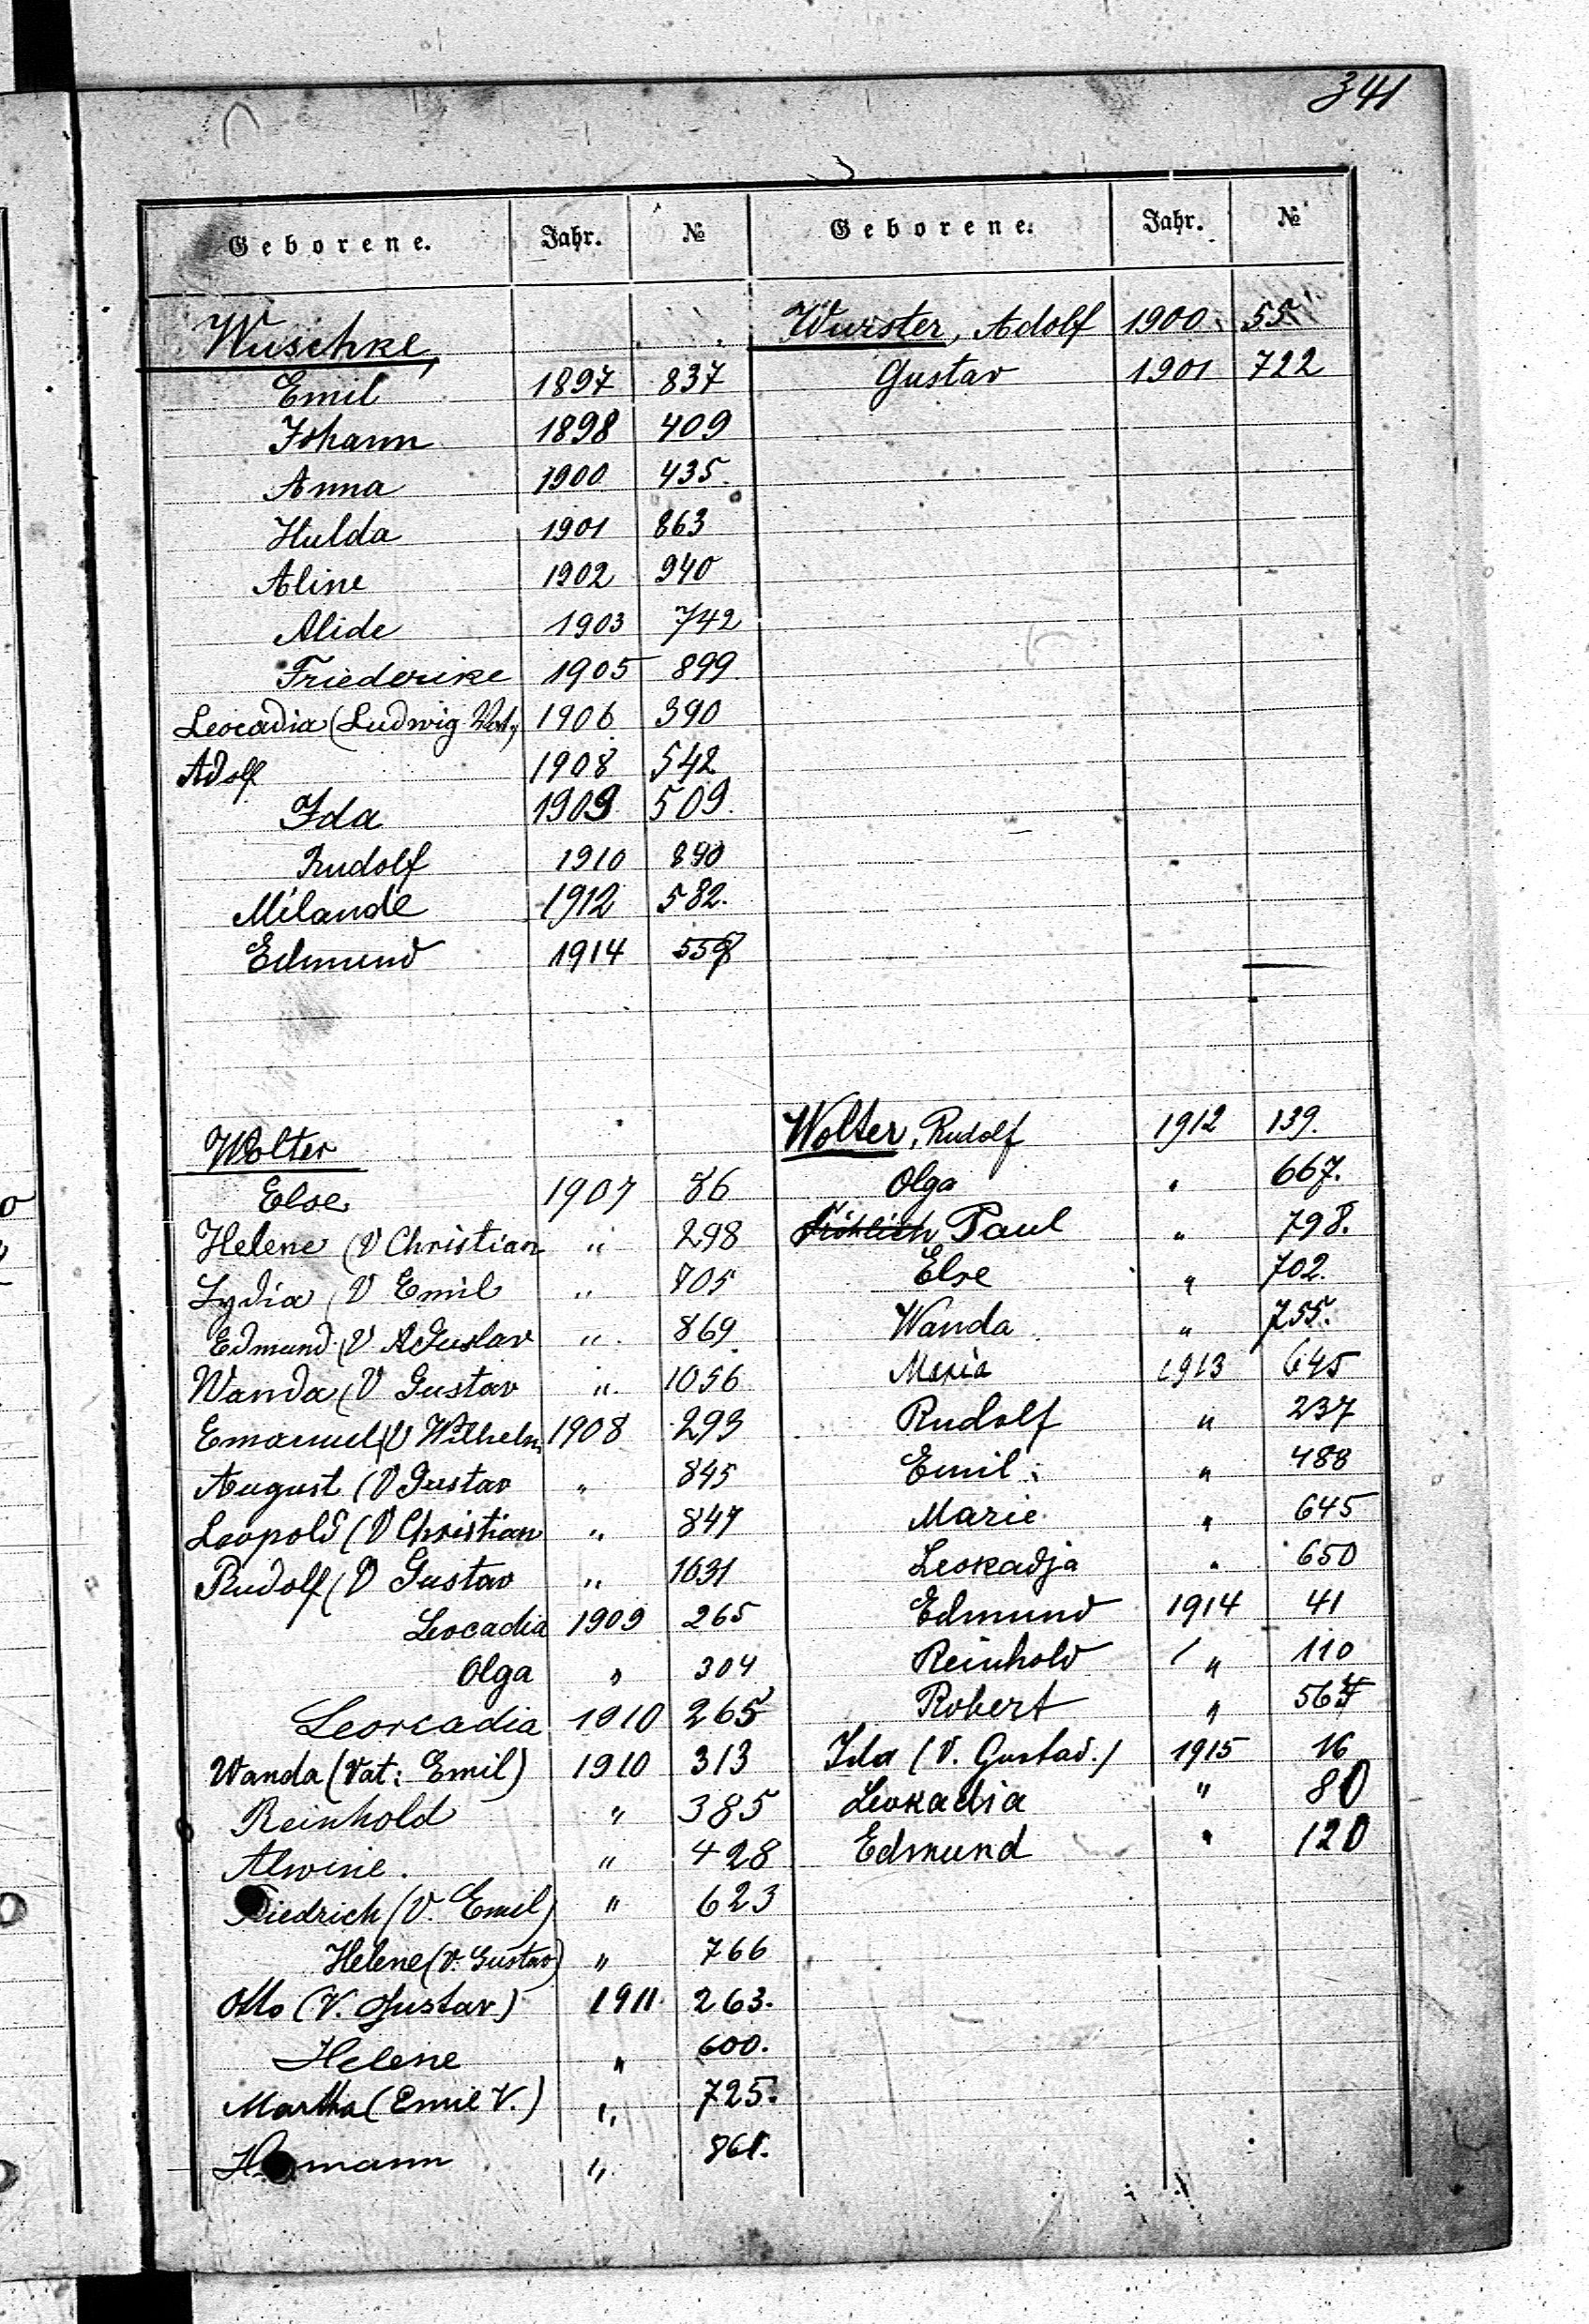 341
Geborene. Jahr. №
Wuschke,
Emil 1897 837
Johann 1898 409
Anna 1900 435.
Hulda 1901 863
Aline 1902 940
Alide 1903 742
Friederike 1905 899
Leocadia (Ludwig Vat.) 1906 390
Adolf 1908 542
Ida 1909 509.
Rudolf 1910 890
Milande 1912 582.
Edmund 1914
Wolter
Else 1907 86
Helene (V Christian " 298
Lydia (V Emil " 805
Edmund (V A Gustav " 869
Wanda (V Gustav " 1056
Emanuel (V Wilhelm 1908 293
August (V Gustav " 845
Leopold (V Christian " 847
Rudolf (V Gustav " 1031
Leocadia 1909 265
Olga " 304
Leorcadia 1910 265
Wanda (Vat: Emil) 1910 313
Reinhold " 385
Alwine. " 428
Friedrich (V. Emil) " 623
Helene (V. Gustav) " 766
Otto (V. Gustav) 1911 263.
Helene " 600.
Martha (Emil V.) " 725.
H mann " 861.
Geborene. Jahr. №
Wurster, Adolf 1900 55
Gustav 1901 722
Wolter, Rudolf 1912 139.
Olga " 667.
Fröhlich Paul " 798.
Else " 702.
Wanda " 755.
Maria 1913 645
Rudolf " 237
Emil " 488
Marie " 645
Leokadja " 650
Edmund 1914 41
Reinhold " 110
Robert "
Ida (V. Gustav.) 1915 16
Leokadia " 80
Edmund " 120